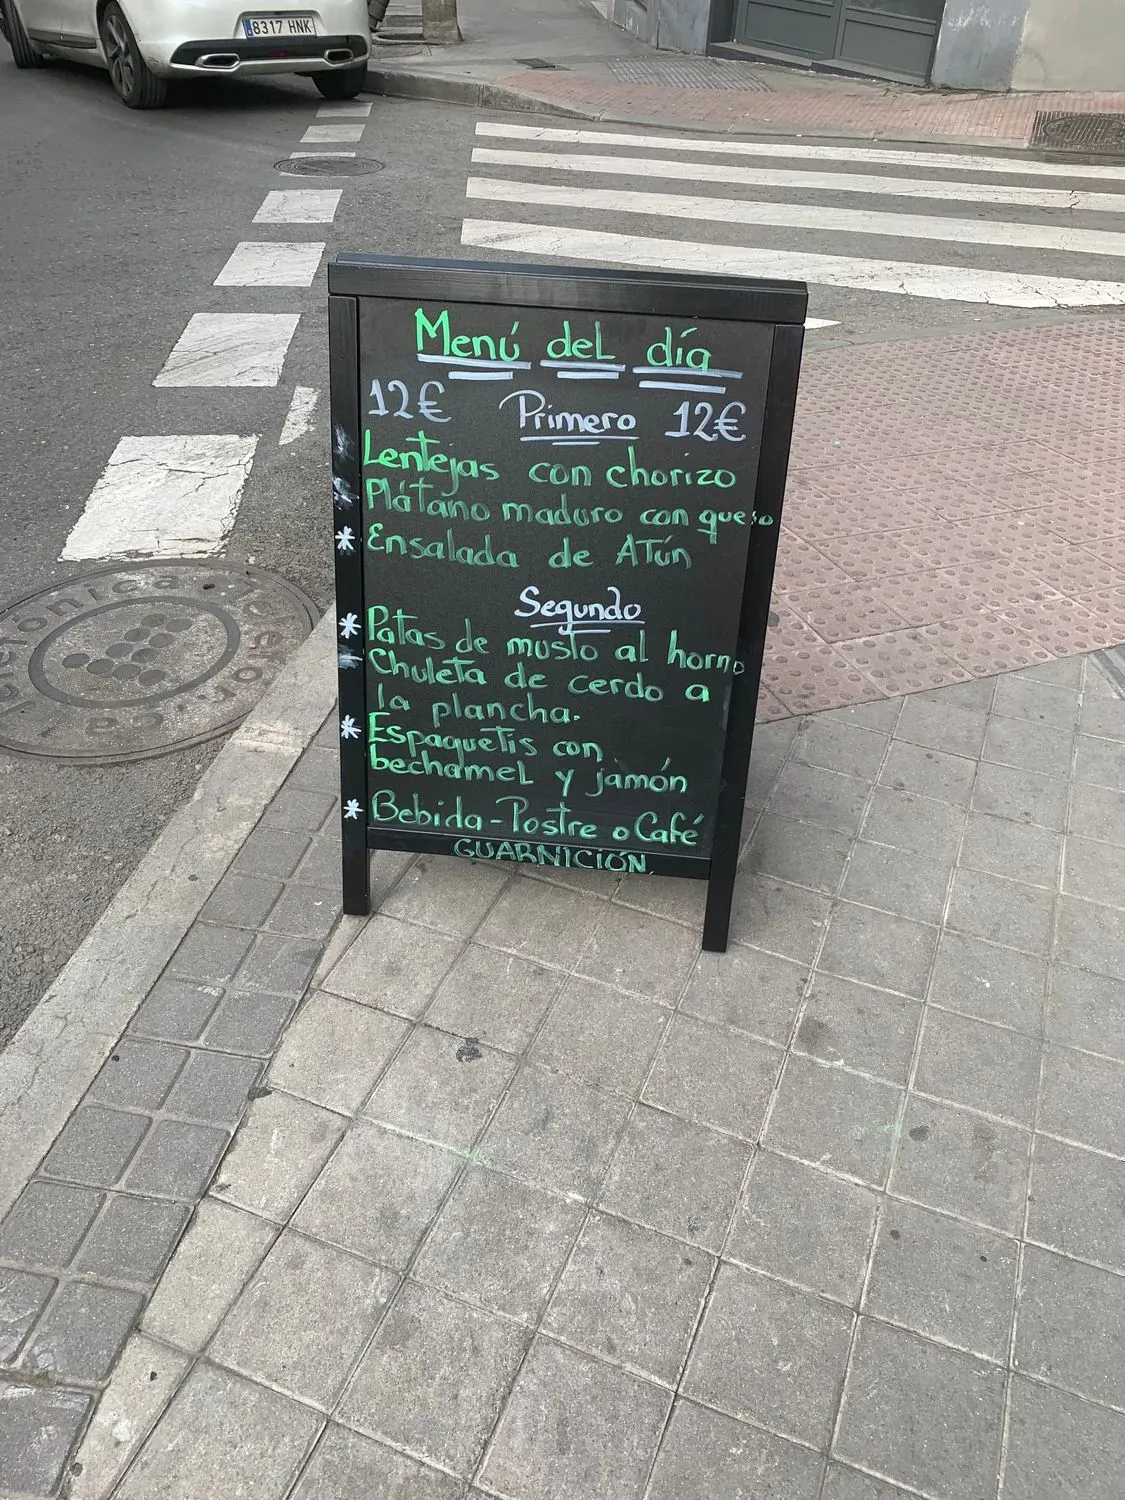 8317 HNK
Menú del día
12€ Primero 12€
Lentejas con chorizo
Plátano maduro con queso
* Ensalada de Atún
Segundo
* Patas de muslo al horno
Chuleta de cerdo a
la plancha.
* Espaguetis con
bechamel y jamón
* Bebida-Postre o Café
GUARNICIÓN
Telefonica